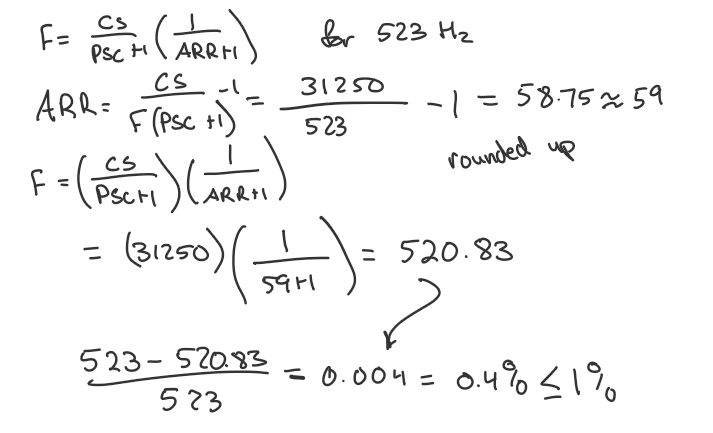 F = CS/(PSC+1) (1/(ARR+1)) for 523 Hz
ARR = CS/(F(PSC+1)) -1 = 31250/523 - 1 = 58.75 ≈ 59
rounded up
F = (CS/(PSC+1)) (1/(ARR+1))
= (31250) (1/(59+1)) = 520.83
(523 - 520.83)/523 = 0.004 = 0.4% ≤ 1%